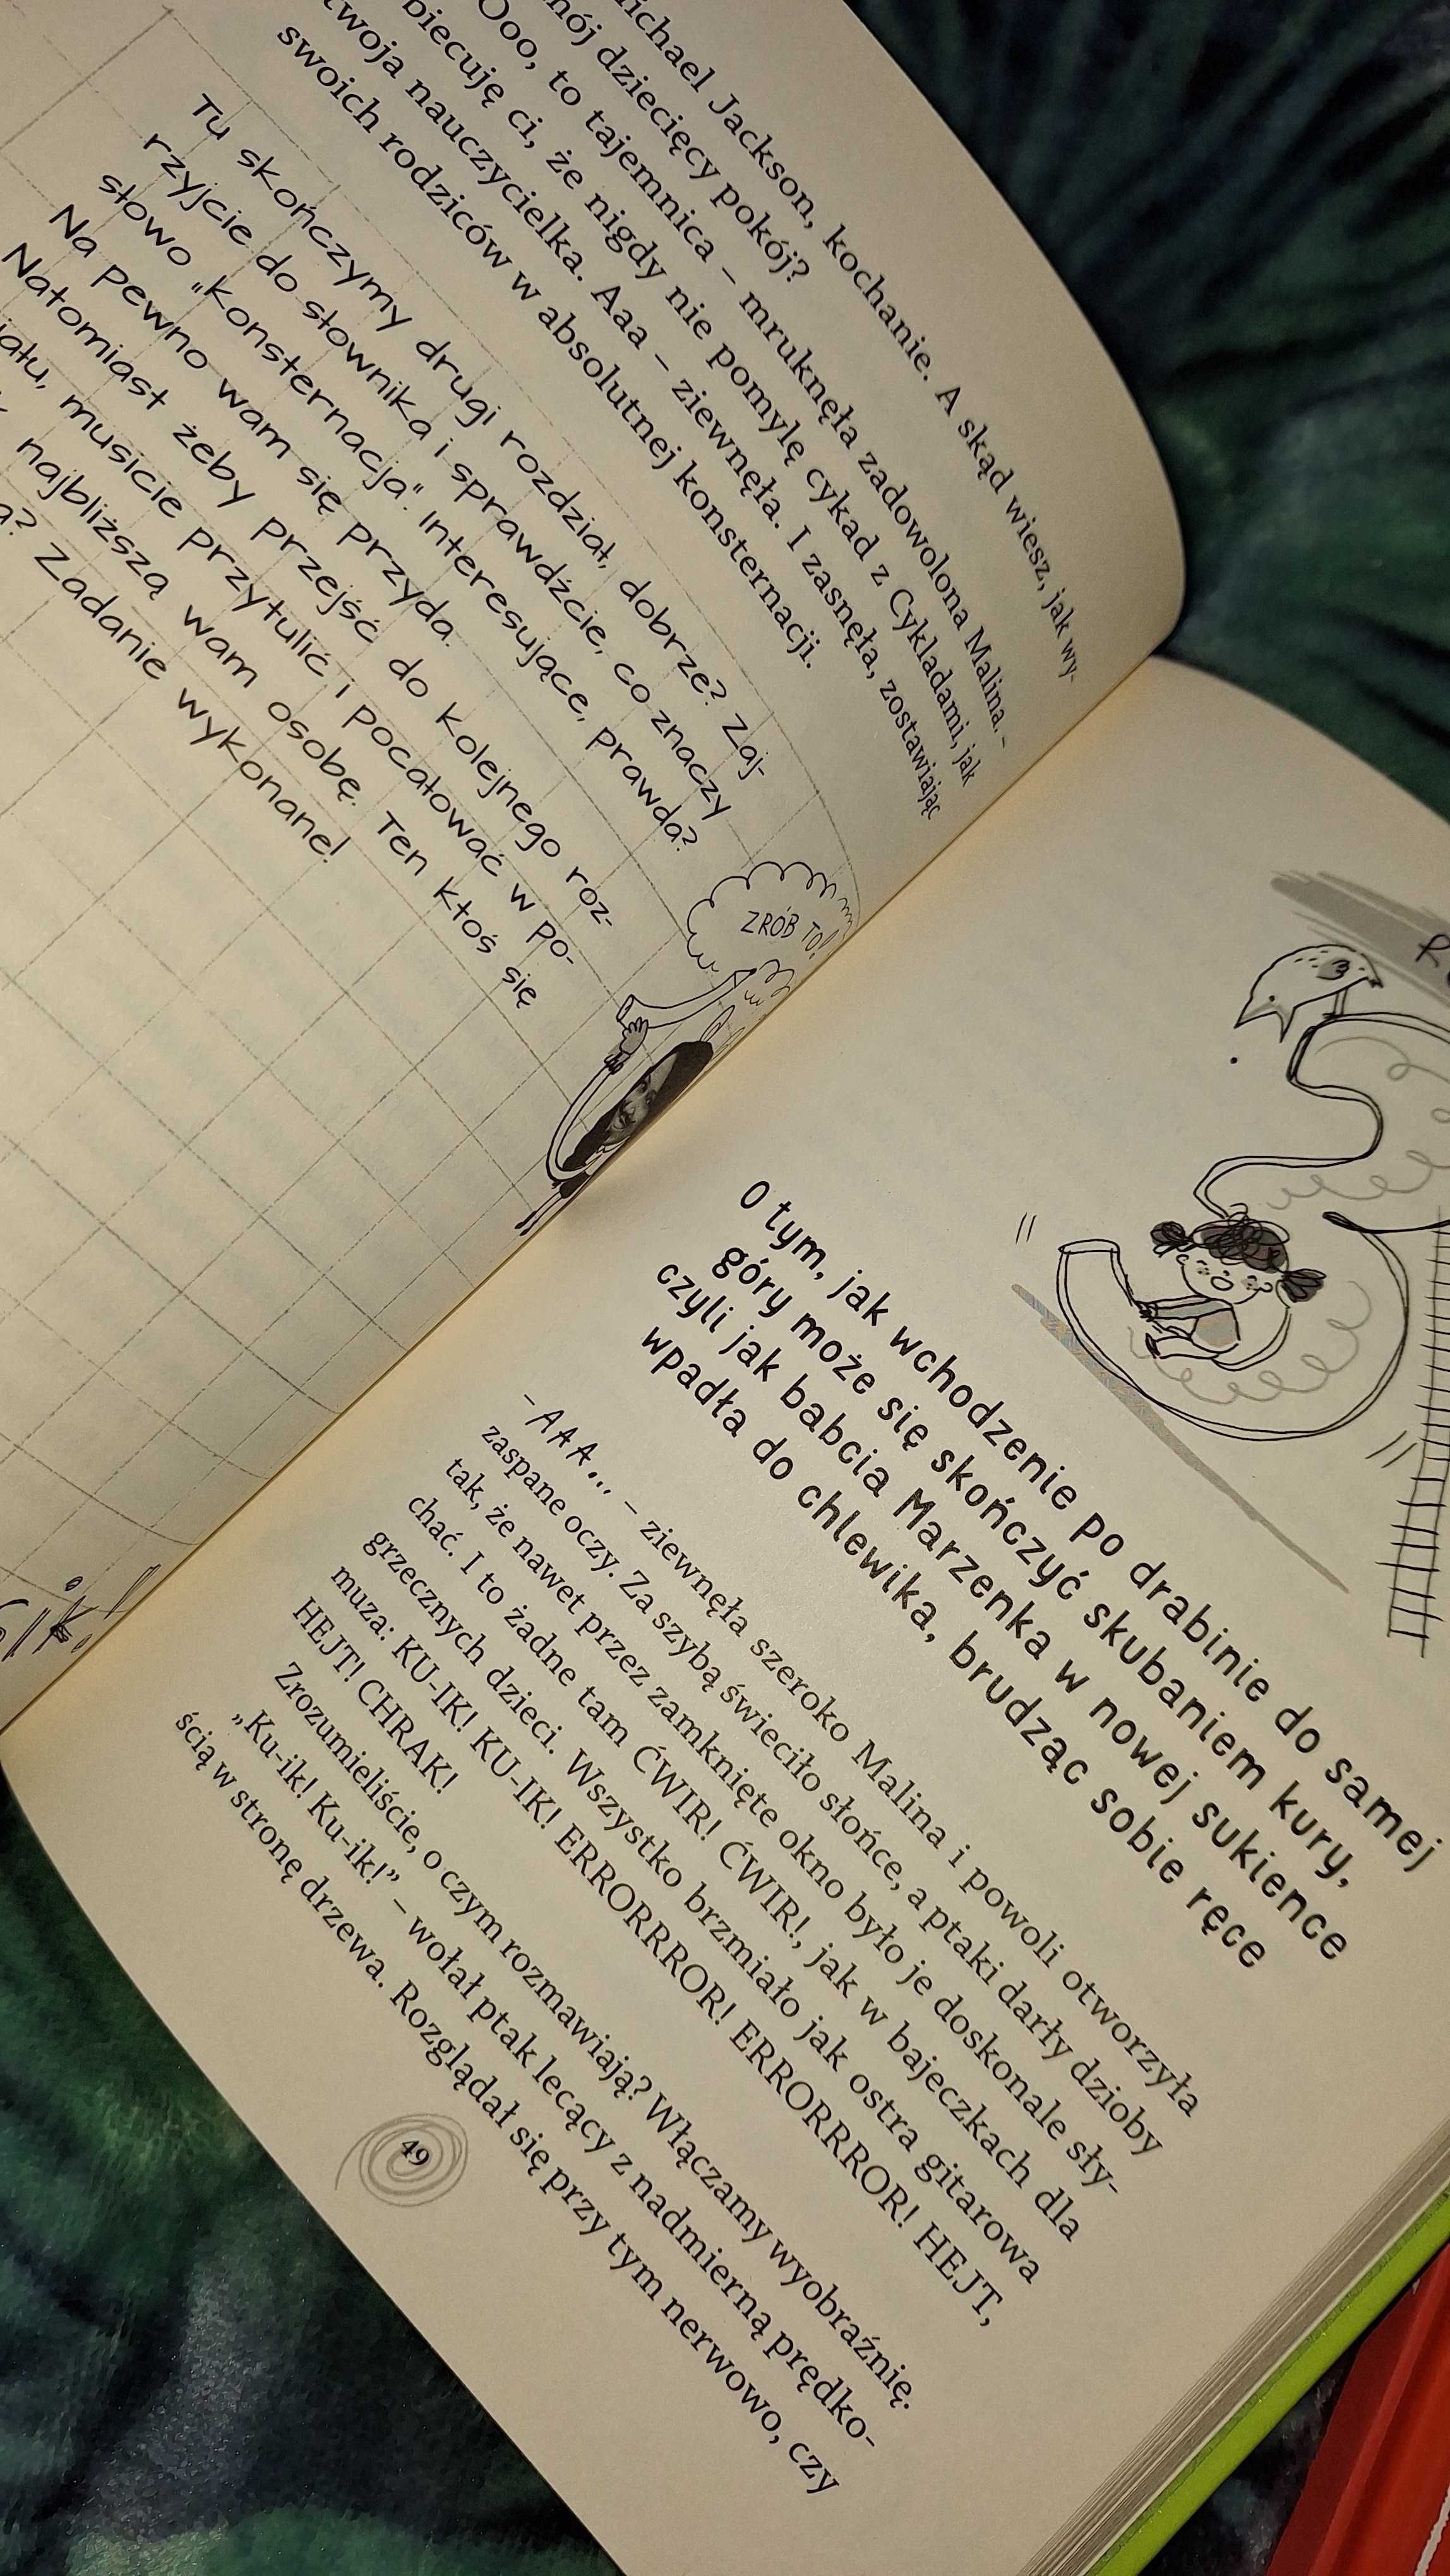 Michael Jackson, kochanie. A skąd wiesz, jak wy-
mój dziecięcy pokój?
Ooo, to tajemnica – mruknęła zadowolona Malina. –
że nigdy nie pomylę cykad z Cykladami, jak
twoja nauczycielka. Aaa – ziewnęła. I zasnęła, zostawiając
swoich rodziców w absolutnej konsternacji.
Tu skończymy drugi rozdział, dobrze? Zaj-
rzyjcie do słownika i sprawdźcie, co znaczy
słowo „konsternacja". Interesujące, prawda?
Na pewno wam się przyda.
Natomiast żeby przejść do kolejnego roz-
działu, musicie przytulić i pocałować w po-
najbliższą wam osobę. Ten ktoś się
Zadanie wykonane!
ZRÓB TO!
O tym, jak wchodzenie po drabinie do samej
góry może się skończyć skubaniem kury,
czyli jak babcia Marzenka w nowej sukience
wpadła do chlewika, brudząc sobie ręce
– AAA... – ziewnęła szeroko Malina i powoli otworzyła
zaspane oczy. Za szybą świeciło słońce, a ptaki darły dzioby
tak, że nawet przez zamknięte okno było je doskonale sły-
chać. I to żadne tam ĆWIR! ĆWIR!, jak w bajeczkach dla
grzecznych dzieci. Wszystko brzmiało jak ostra gitarowa
muza: KU-IK! KU-IK! ERRORRROR! ERRORRROR! HEJT,
HEJT! CHRAK!
Zrozumieliście, o czym rozmawiają? Włączamy wyobraźnię.
„Ku-ik! Ku-ik!” – wołał ptak lecący z nadmierną prędko-
ścią w stronę drzewa. Rozglądał się przy tym nerwowo, czy
49